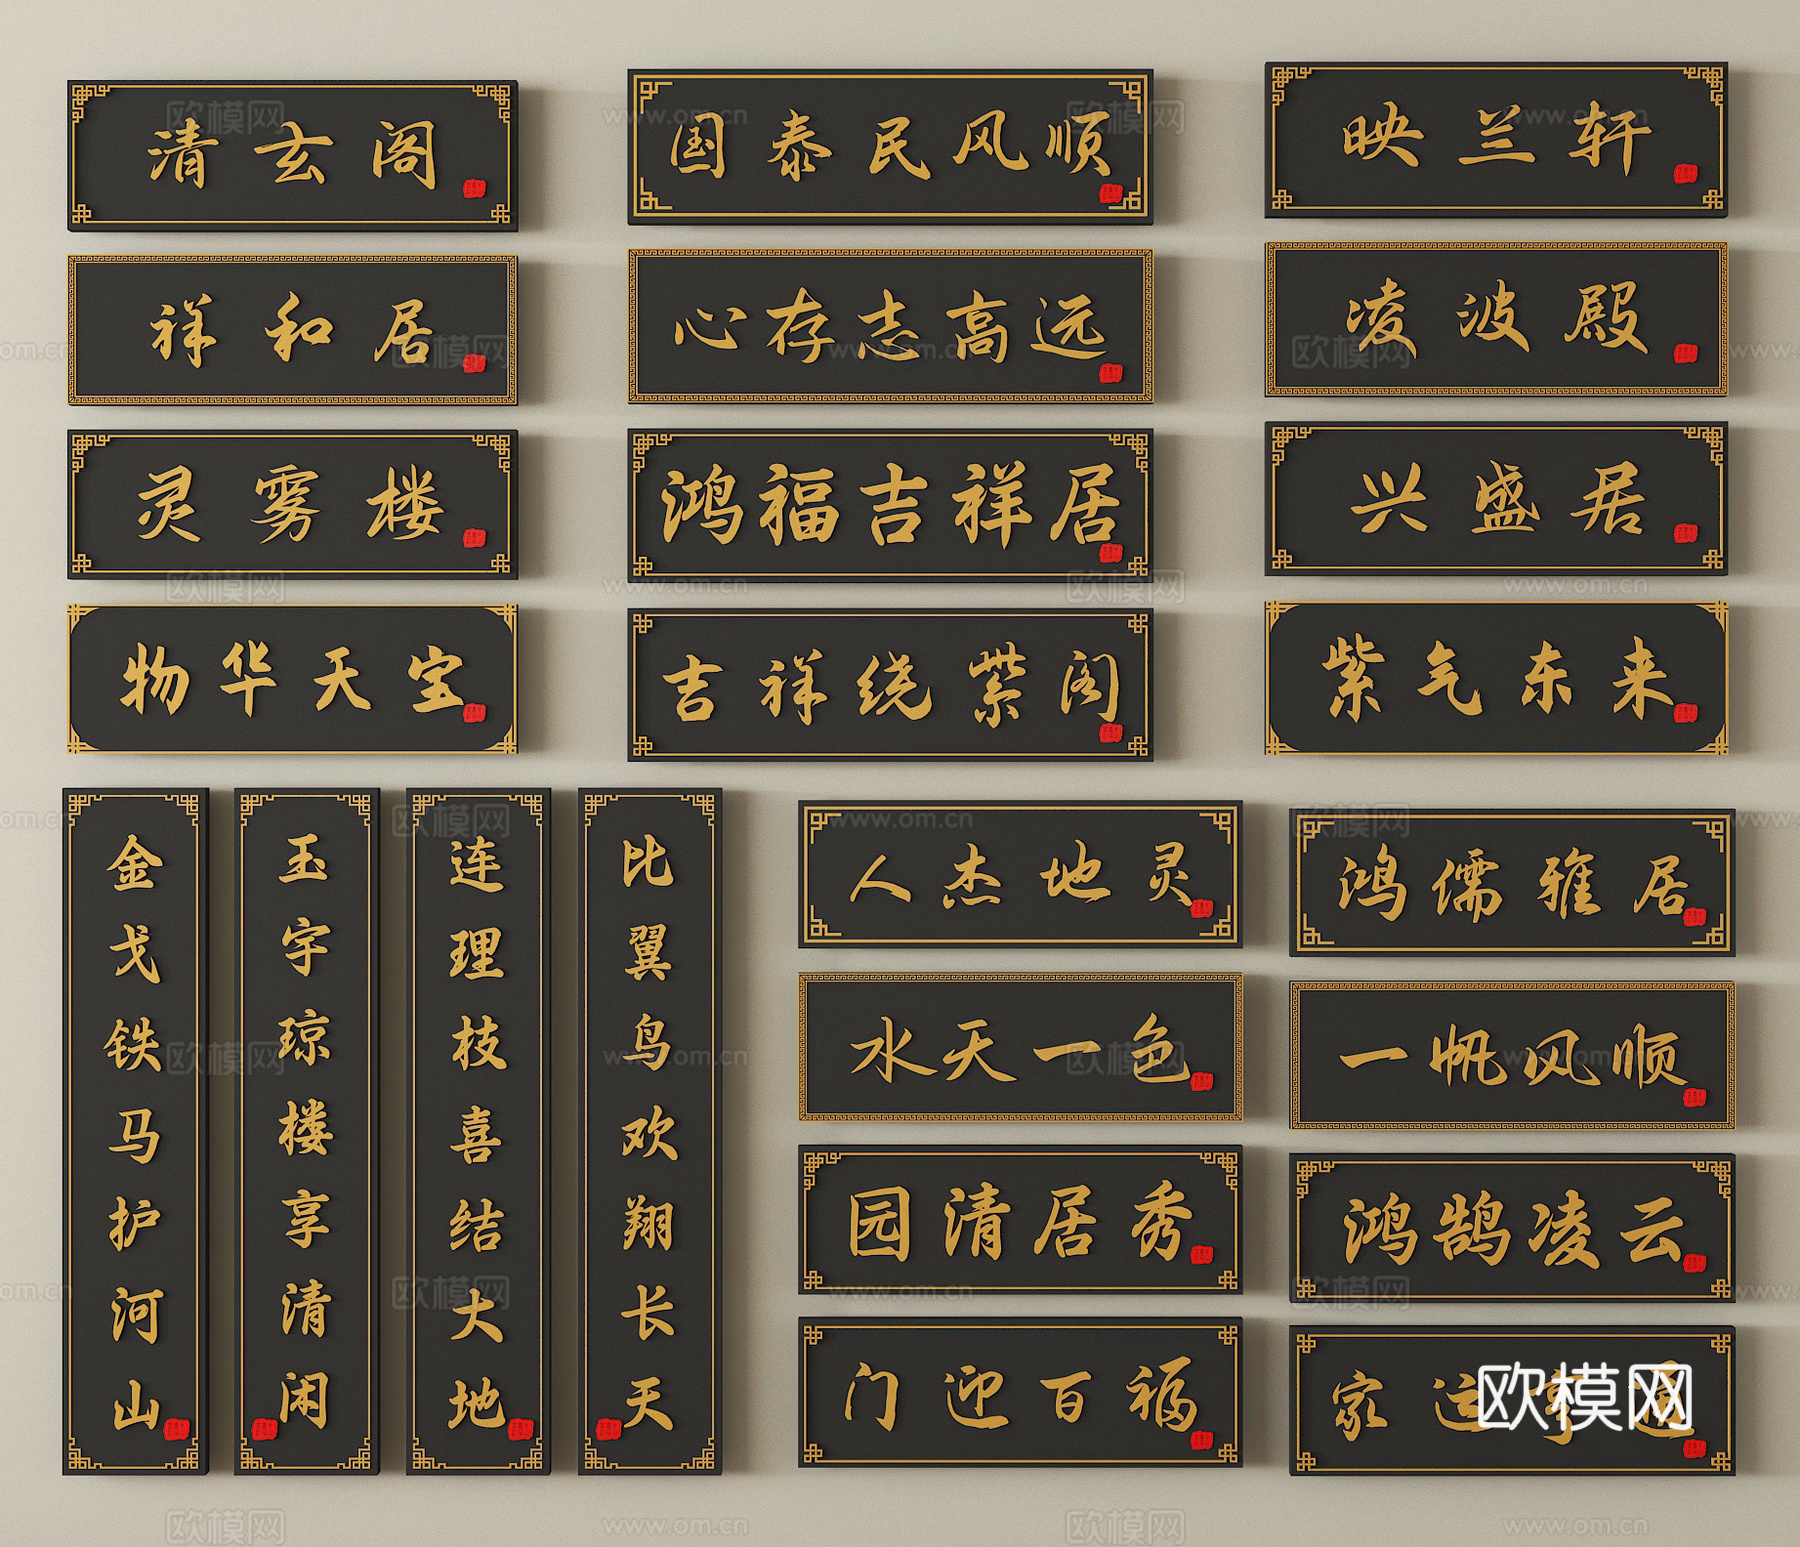 清玄阁
国泰民风顺
映兰轩
祥和居
心存志高远
凌波殿
灵雾楼
鸿福吉祥居
兴盛居
物华天宝
吉祥绕紫阁
紫气东来
金戈铁马护河山
玉宇琼楼享清闲
连理枝喜结大地
比翼鸟欢翔长天
人杰地灵
鸿儒雅居
水天一色
一帆风顺
园清居秀
鸿鹄凌云
门迎百福
家运
欧模网
www.om.cn